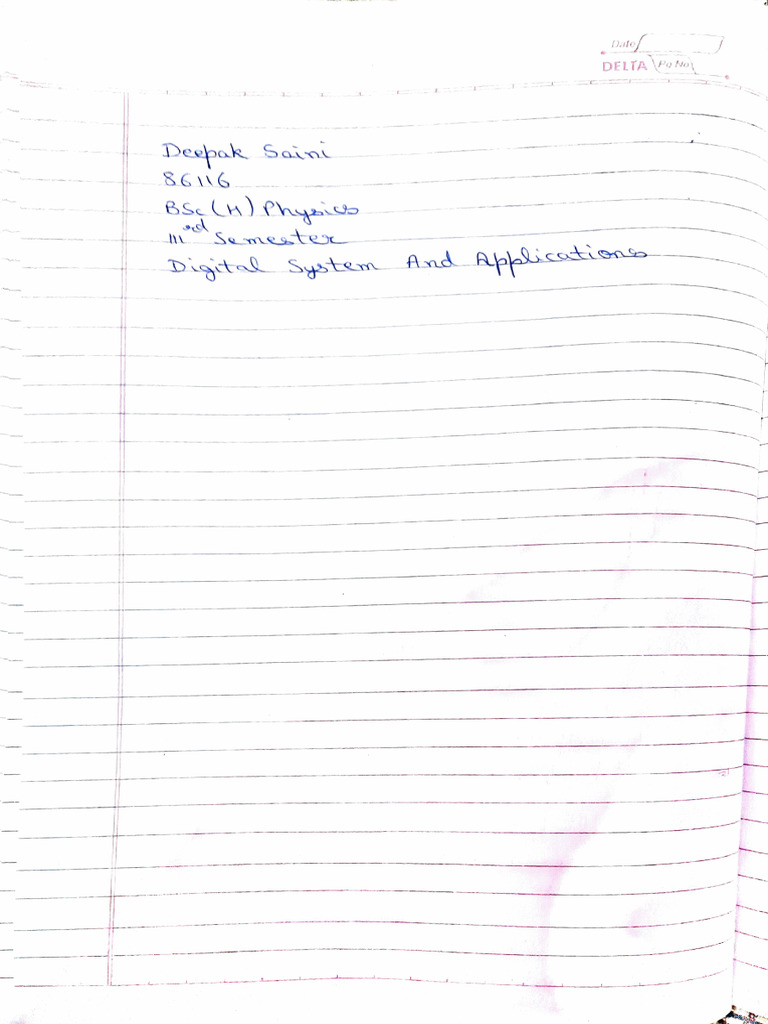 Date
DELTA Pg No
Deepak Saini
86116
BSc (H) Physics
IIIrd Semester
Digital System And Applications